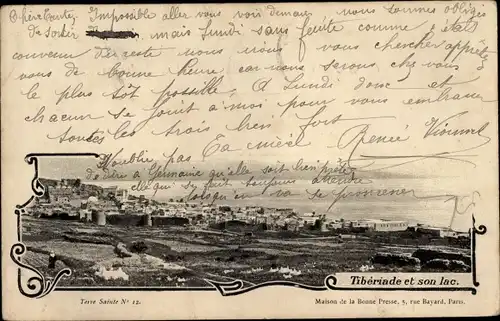 Chère Bertey Impossible aller vous voir demain nous sommes obligés
de sortir mais Lundi sans faute comme c'était
convenu du reste nous nous vous chercher apprêtez
vous de bonne heure car nous serons chez vous
le plus tôt possible, A Lundi donc et
chacun se joint à moi pour vous embrasser
toutes les trois bien fort
Ta
Renée
N'oublie pas
de dire à Germaine qu'elle soit bien prête
elle qui se fait toujours attendre
lorsqu'on va se promener
Tibériade et son lac.
Terre Sainte No 12.
Maison de la Bonne Presse, 5, rue Bayard, Paris.